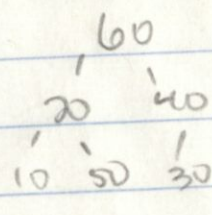 60
20 40
10 50 30